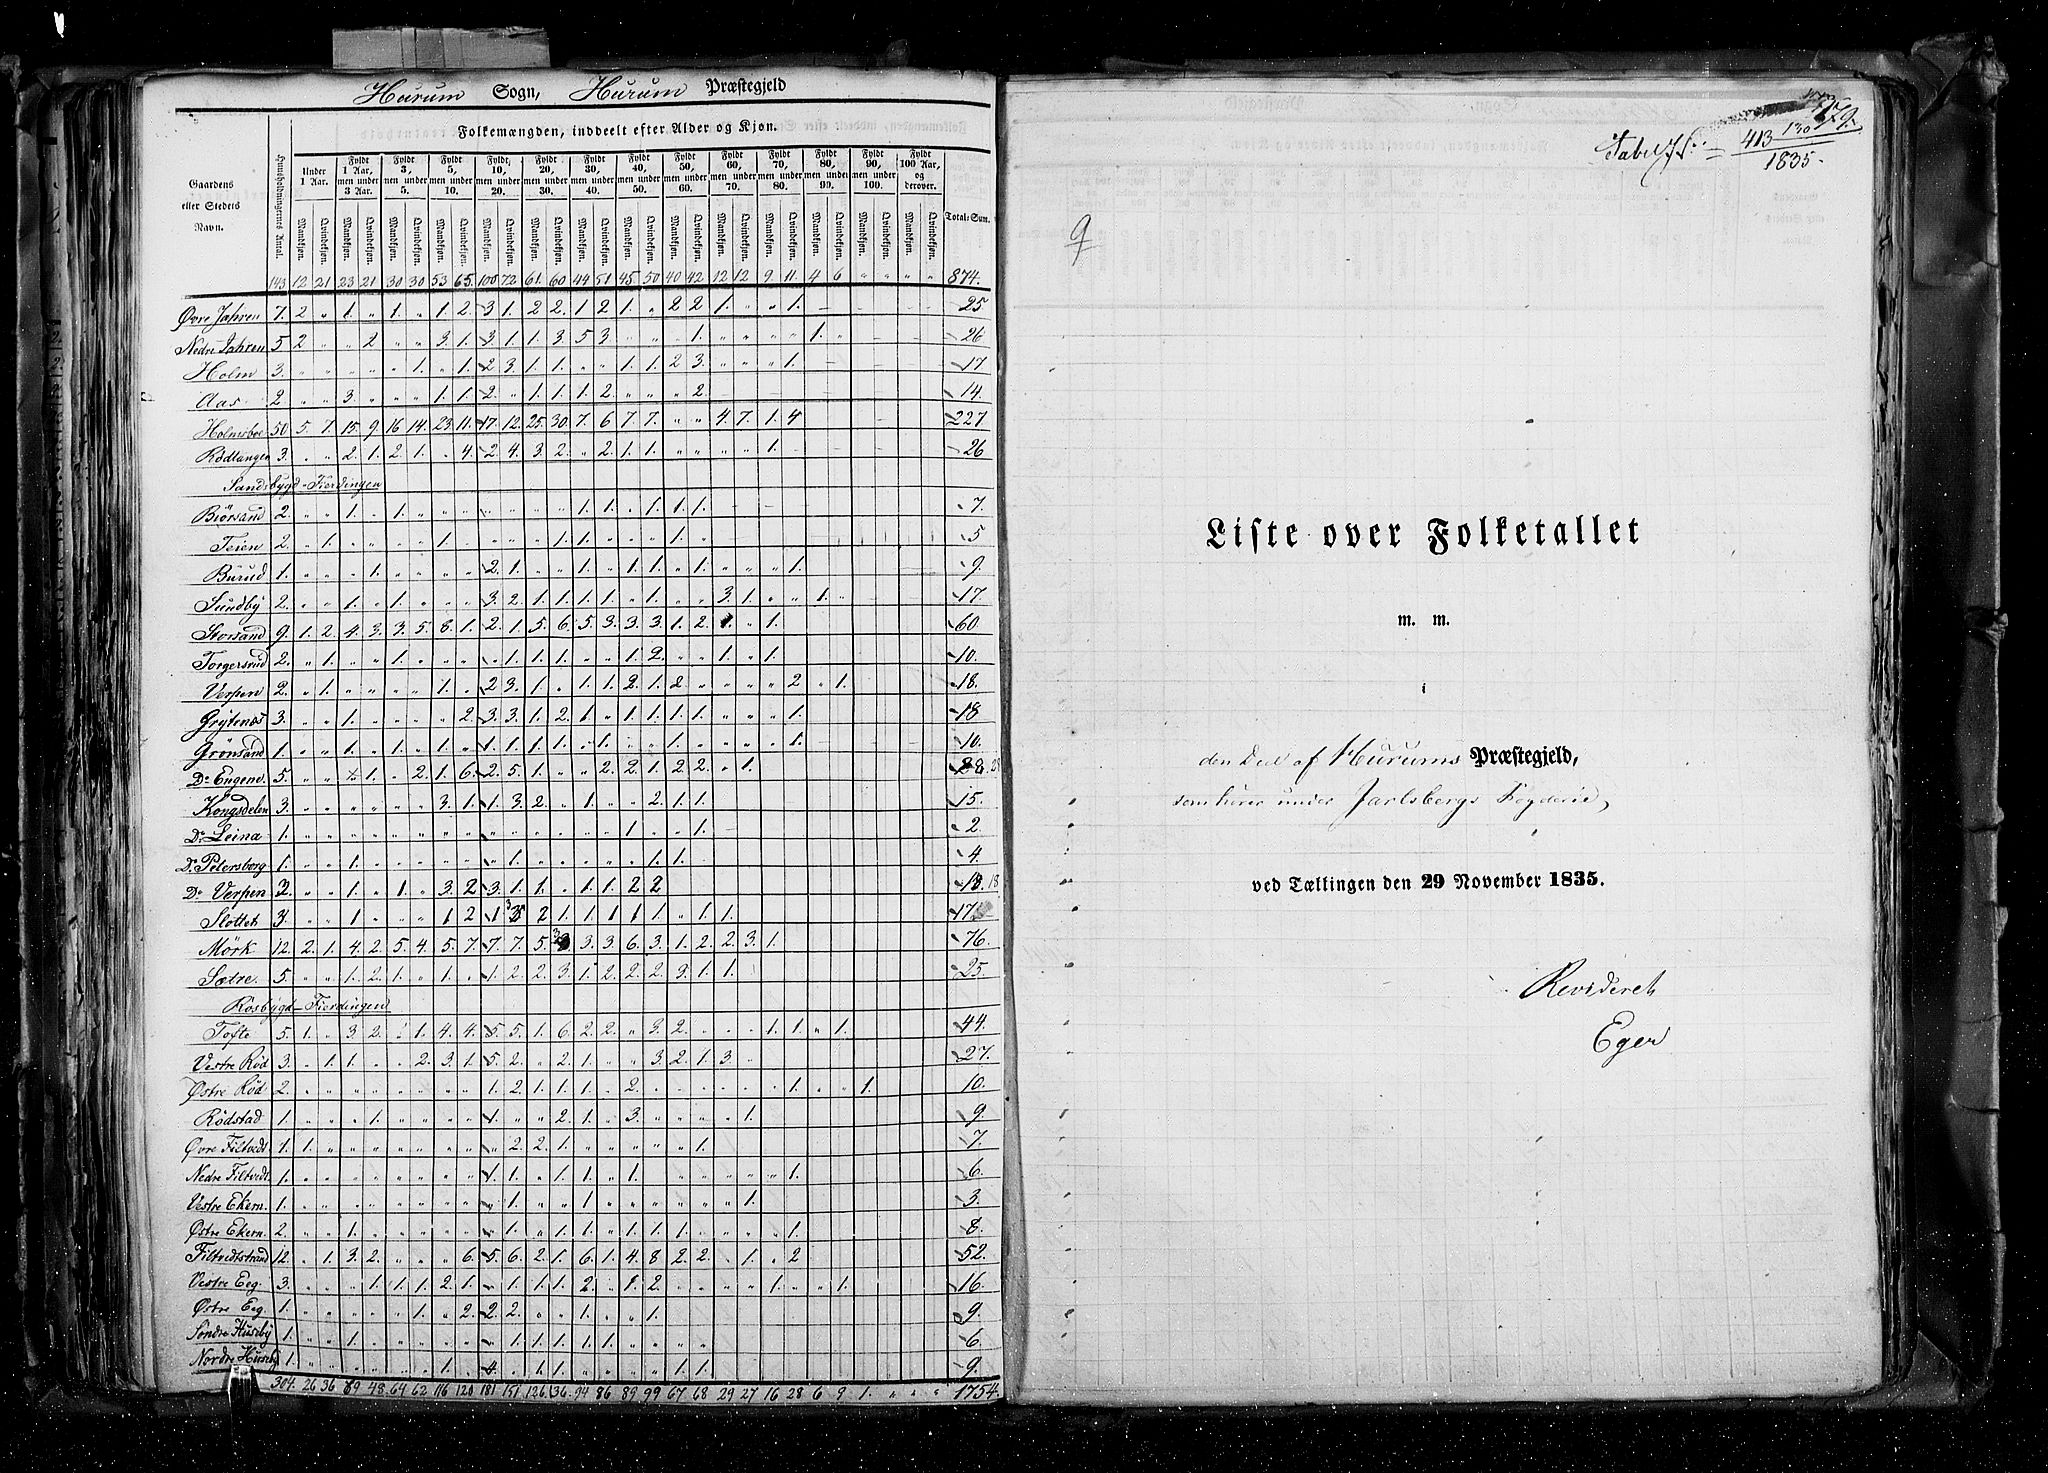 Hurum Sogn, Hurum Præstegjeld
Folkemængden, inddeelt efter Alder og Kjøn.
Gaardens eller Stedets Navn.
Huusholdningernes Antal.
Under 1 Aar.
Fyldt 1 Aar, men under 3 Aar.
Fyldt 3, men under 5.
Fyldt 5, men under 10.
Fyldt 10, men under 20.
Fyldt 20, men under 30.
Fyldt 30, men under 40.
Fyldt 40, men under 50.
Fyldt 50, men under 60.
Fyldt 60, men under 70.
Fyldt 70, men under 80.
Fyldt 80, men under 90.
Fyldt 90, men under 100.
Fyldt 100 Aar, og derover.
Mandkjøn. Qvindekjøn.
Total-Sum.
143 12 21 23 21 30 30 53 65. 100 72 61. 60 44 51 45 50 40 42 12 12 9 11. 4 6 " " " " 874.
Øvre Jahren 7. 2 " 1. " 1. " 1. 2. 3 1. 2 2. 1 2 1. " 2 2 1. " " 1. 25
Nedre Jahren 5 2 " " 2 " " 3. 1. 3 1. 1. 3 5 3 " " " 1. " " " " 1. 26
Holm 3. " " " " " 1. " 1. 2 3. 1. 1. " " 1. 1. 2 3. " " " 1. 17
Aas 2 " " 3 " " " 1. 1. 2. " 1. 1. 1. 2. " " " 2. 14.
Holmsboe 50 5. 7. 15. 9. 16 14. 23. 11. 17. 12. 25. 30. 7. 6 7. 7. " " 4. 7. 1. 4 227
Rödtangen 3. " " 2. 1. 2. 1. " 4. 2 4. 3. 2. " 2. 1. 1. " " " " 1. 26
Sandsbygd-Fierdingen
Biörsand 2. " " 1. " 1. " " " " " " " 1. 1. " 1. 1. 1. 7.
Teien 2. " 1. " " " " 1. " " " " 1. 1. " " " 1. " 5
Burud 1. " " " 1. " " " " 2. 1. " " 1. " 1. 1. " 1. " " " 1. 9.
Sundby 2. " " 1. " 1. " " " 3. 2. 1. 1. 1. 1. " 1. " " 3. 1. " " 1. " 17.
Storsand 9. 1. 2. 4. 3. 3. 5. 8. 1. 2. 1. 5. 6. 5. 3. 3. 3. 1. 2. 1. " 1. 60.
Torgersrud 2. " 1. " " 1. " " " " 1. 1. 1. " " 1. 2. " " 1. " 1. 10.
Verpen 2. " 1. " " " " 1. " 2 3. 1. " 1. 1. 2. 1. 2 " " " " 2 " 1. 18.
Grytenæs 3. " " 1. " " " " 2. 3. 3. 1. 2. 1. " 1. 1. 1. 1. " " " 1. 18
Grönsand 1. " " 1. " 1. " 1. " 1. 1. 1. 1. " 1. " " 1. " " " " 1. 10.
Do Engene. 5. " " 1. " 2. 1. 6. 2. 5. 1. " " 2. 2. 1. 2. 2. " 1. 28
Kongsdelen 3. " " " " " " 3. 1. 1. 3. 2. " 1. " " 2. 1. 1. 15.
Do Leina 1. " " " " " " " " " " " " " " 1. " " 1. 2.
Do Petersborg 1. " " 1. " " " " " " 1. " " " " " 1. 1. 4.
Do Verpen 2. " " 1. " 1. " 3. 2 3. 1. 1. " 1. 1. 2 2 18
Slottet 3. " " 1 " " " 1 2 1 3 2 1. 1. 1. 1 1. " 1. 1. 17.
Mörk 12. 2. 1. 4. 2. 5. 4. 5. 7. 7. 7. 5. 3 3. 3. 6. 3. 1. 2. 2. 3. 1. 76.
Sætre. 5. " " 1. 2. 1. " 1. " 1. 2. 2. 3. 1. 2. 2. 2. 3. 1. 1. 25.
Rosbygd-Fierdingen
Tofte 5. 1. " 3. 2. " 1. 4. 4. 5. 5. 1. 6. 2. 2. " 3. 2. " " " 1. 1. " 1. 44.
Vestre Röd 3. " 1. 1. " " 2. 3. 1. 5. 2. " 2. 1. " " 3. 2. 1. 3. " 27.
Østre Röd 2. " " " " " " " " 1. 2. 1. 1. 1. " 2. " " " " " " 1. " " 1. 10.
Rödstad 1. " " " 1. " " " " 1. " " 2. 1. " 3. " " " " 1. 9.
Øvre Filtvedt. 1. 1. " " " " " " " " 2. 2. 1. " " " " " 1. 7.
Nedre Filtvedt. 1. " " " " " " " " 1. 1. " 1. 1. " 1. " " " " " " 1. 6.
Vestre Ekern. 1. " " " " " " " " " 1. " " 1. " " " " " " 1. 3.
Østre Ekern. 2. " " 1. " " " " " " 1. " 1. 1. " 1. 1. 1. " " " " 1. 8.
Filtvedtstrand 12. " 1. 3. 2. " " " 6. 5. 6. 2. 1. 6. 1. 4. 8 2. 2. " 1. " 2 52.
Vestre Eeg. 3. " " " 1. 1. 1. 2. 1. " 1. 1. 1. 2. " 1. 2. " " " " 1. " " 1. 16.
Østre Eeg. 1. " " " " " 1. " 2. 2. 2. " " 1. " " 1. 9.
Söndre Huseby 1. " " 1. " " " " " " 1. 1. 1. 1. 1. " " " 6
Nordre Huseby 1. " " " " " " 1. " 4. " 1. 1. " " " " 1. 1. 9.
304. 26 36 89 48. 64 62 116 120 181 151. 126. 136. 94 86 89 99 67 68 29 27 16 28 6 9 1. " " " 1754.
179.
Tabel 75. 413 130
1835.
9
Liste over Folketallet
m. m.
i
den Deel af Hurums Præstegjeld,
som hører under Jarlsbergs Fogderie,
ved Tællingen den 29 November 1835.
Revideret
Eger